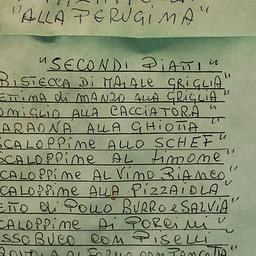 "ALLA PERUGINA"
"SECONDI PIATTI"
BISTECCA DI MAIALE GRIGLIA"
ETTINA DI MANZO ALLA GRIGLIA"
ONIGLIO ALLA CACCIATORA "
ARAONA ALLA GHIOTTA "
SCALOPPINE ALLO SCHEF"
SCALOPPINE AL LIMONE"
CALOPPINE AL VINO BIANCO"
CALOPPINE ALLA PIZZAIOLA"
ETTO DI POLLO BURRO e SALVIA"
CALOPPINE AI PORCINI"
SSOBUCO CON PISELLI